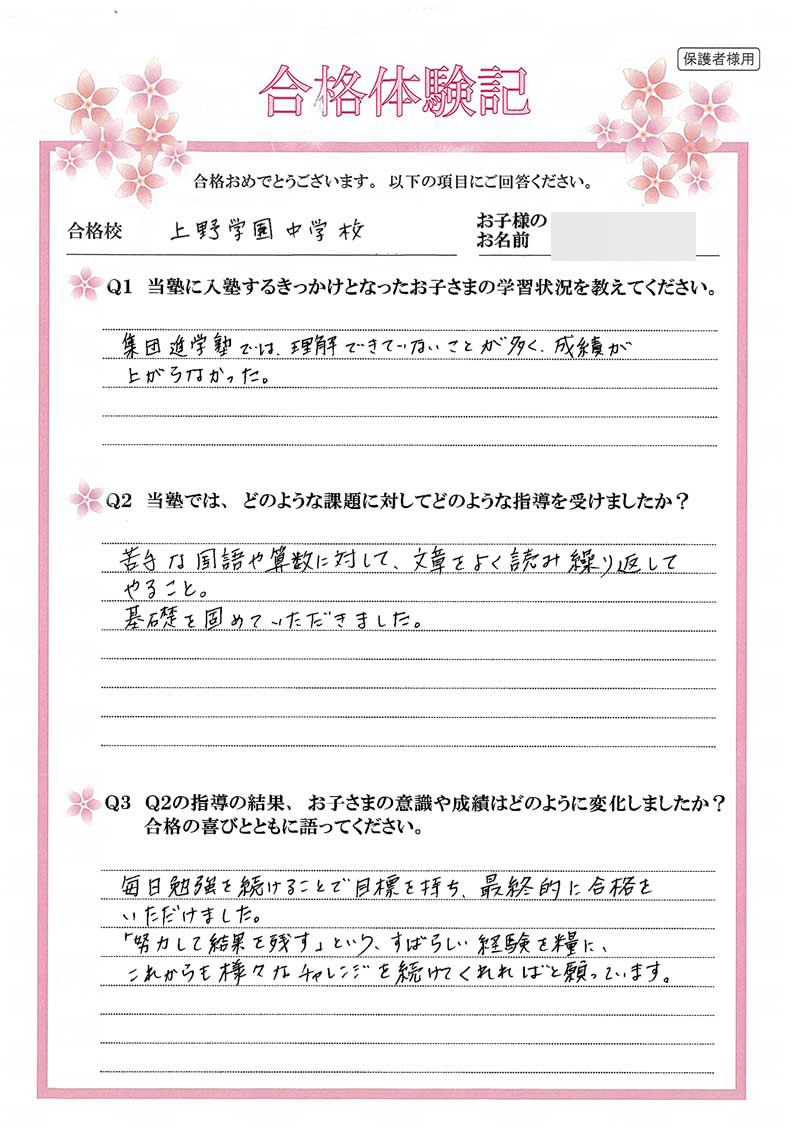 保護者様用
合格体験記
合格おめでとうございます。以下の項目にご回答ください。
合格校 上野学園中学校
お子様の
お名前
Q1 当塾に入塾するきっかけとなったお子さまの学習状況を教えてください。
集団進学塾では、理解できていないことが多く、成績が
上がらなかった。
Q2 当塾では、どのような課題に対してどのような指導を受けましたか？
苦手な国語や算数に対して、文章をよく読み繰り返して
やること。
基礎を固めていただきました。
Q3 Q2の指導の結果、お子さまの意識や成績はどのように変化しましたか？
合格の喜びとともに語ってください。
毎日勉強を続けることで目標を持ち、最終的に合格を
いただけました。
「努力して結果を残す」という、すばらしい経験を糧に、
これからも様々なチャレンジを続けてくれればと願っています。